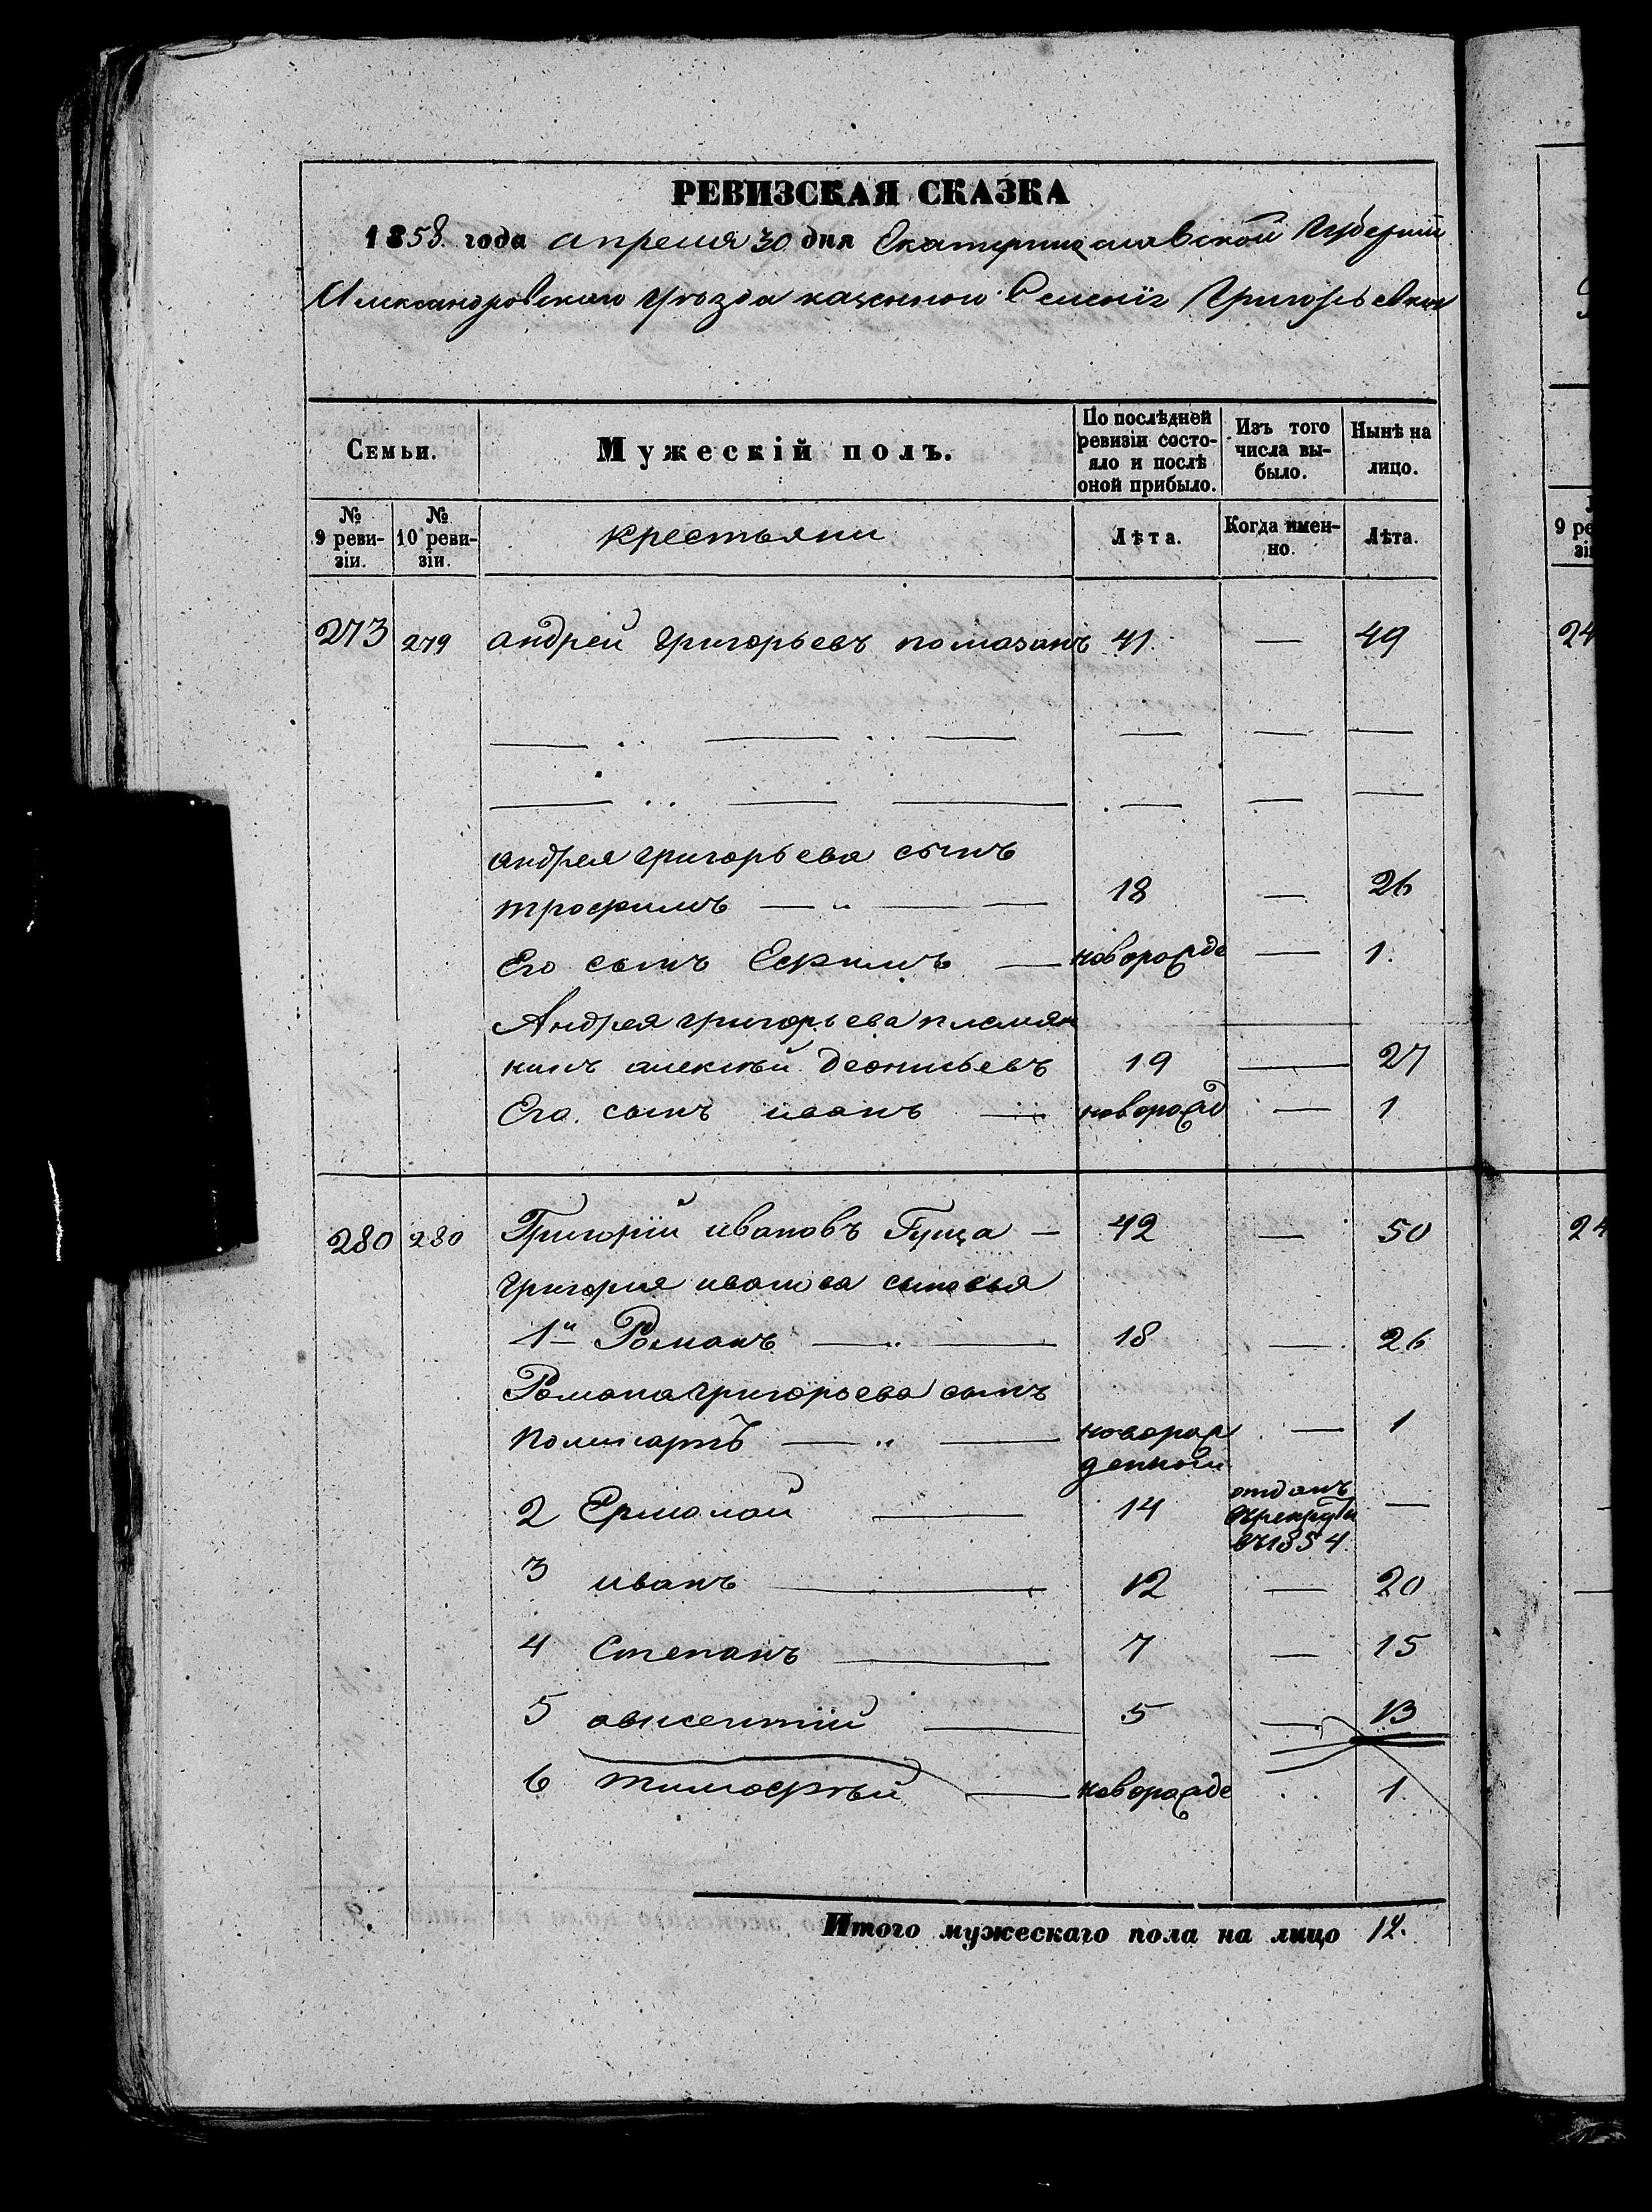 РЕВИЗСКАЯ СКАЗКА
1858. года апреля 30 дня Екатеринославской Губернии
Александровского уѣзда казенного Селенія Григорьевки
Семьи.
Мужескій полъ.
По послѣдней ревизіи состояло и послѣ оной прибыло.
Изъ того числа выбыло.
Нынѣ на лицо.
№ 9 ревизіи.
№ 10 ревизіи.
крестьяни
Лѣта.
Когда именно.
Лѣта.
9 ре
зі
273 279 андрей Григорьевъ помазанъ 41. — 49
24
андрея григорьева сынъ
трофимъ — " — — 18 — 26
Его сынъ Ефимъ — новорожде — 1.
Андрея григорьева племян
никъ алексѣй Деонисьевъ 19 — 27
Его. сынъ иванъ — новорожд — 1
280 280 Григорій ивановъ Гуща — 42 — 50
24
григория иванова сыновья
1й Романъ — " — 18 — 26
Романа григорьева сынъ
поликарпъ — " — новорож — 1
денной
2 Ермолай — 14 отданъ —
въ рекруты
въ 1854.
3 иванъ — 12 — 20
4 Степанъ — 7 — 15
5 авксентий — 5 — 13
6 тимофѣй — новорожде . . 1.
Итого мужескаго пола на лицо 12.